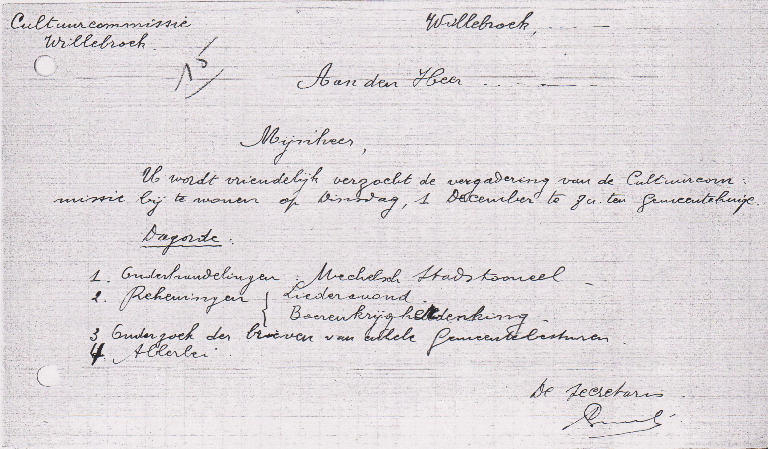 Cultuurcommissie
Willebroek.
Willebroek,
15
Aan den Heer
Mijnheer,
U wordt vriendelijk verzocht de vergadering van de Cultuurcom:
missie bij te wonen op Dinsdag, 1 December te 8u. ten Gemeentehuize.
Dagorde:
1. Onderhandelingen: Mechelsch Stadstooneel
2. Rekeningen { Liederavond.
Boerenkrijgherdenking.
3 Onderzoek der brieven van enkele Gemeentebesturen
4 Allerlei.
De secretaris